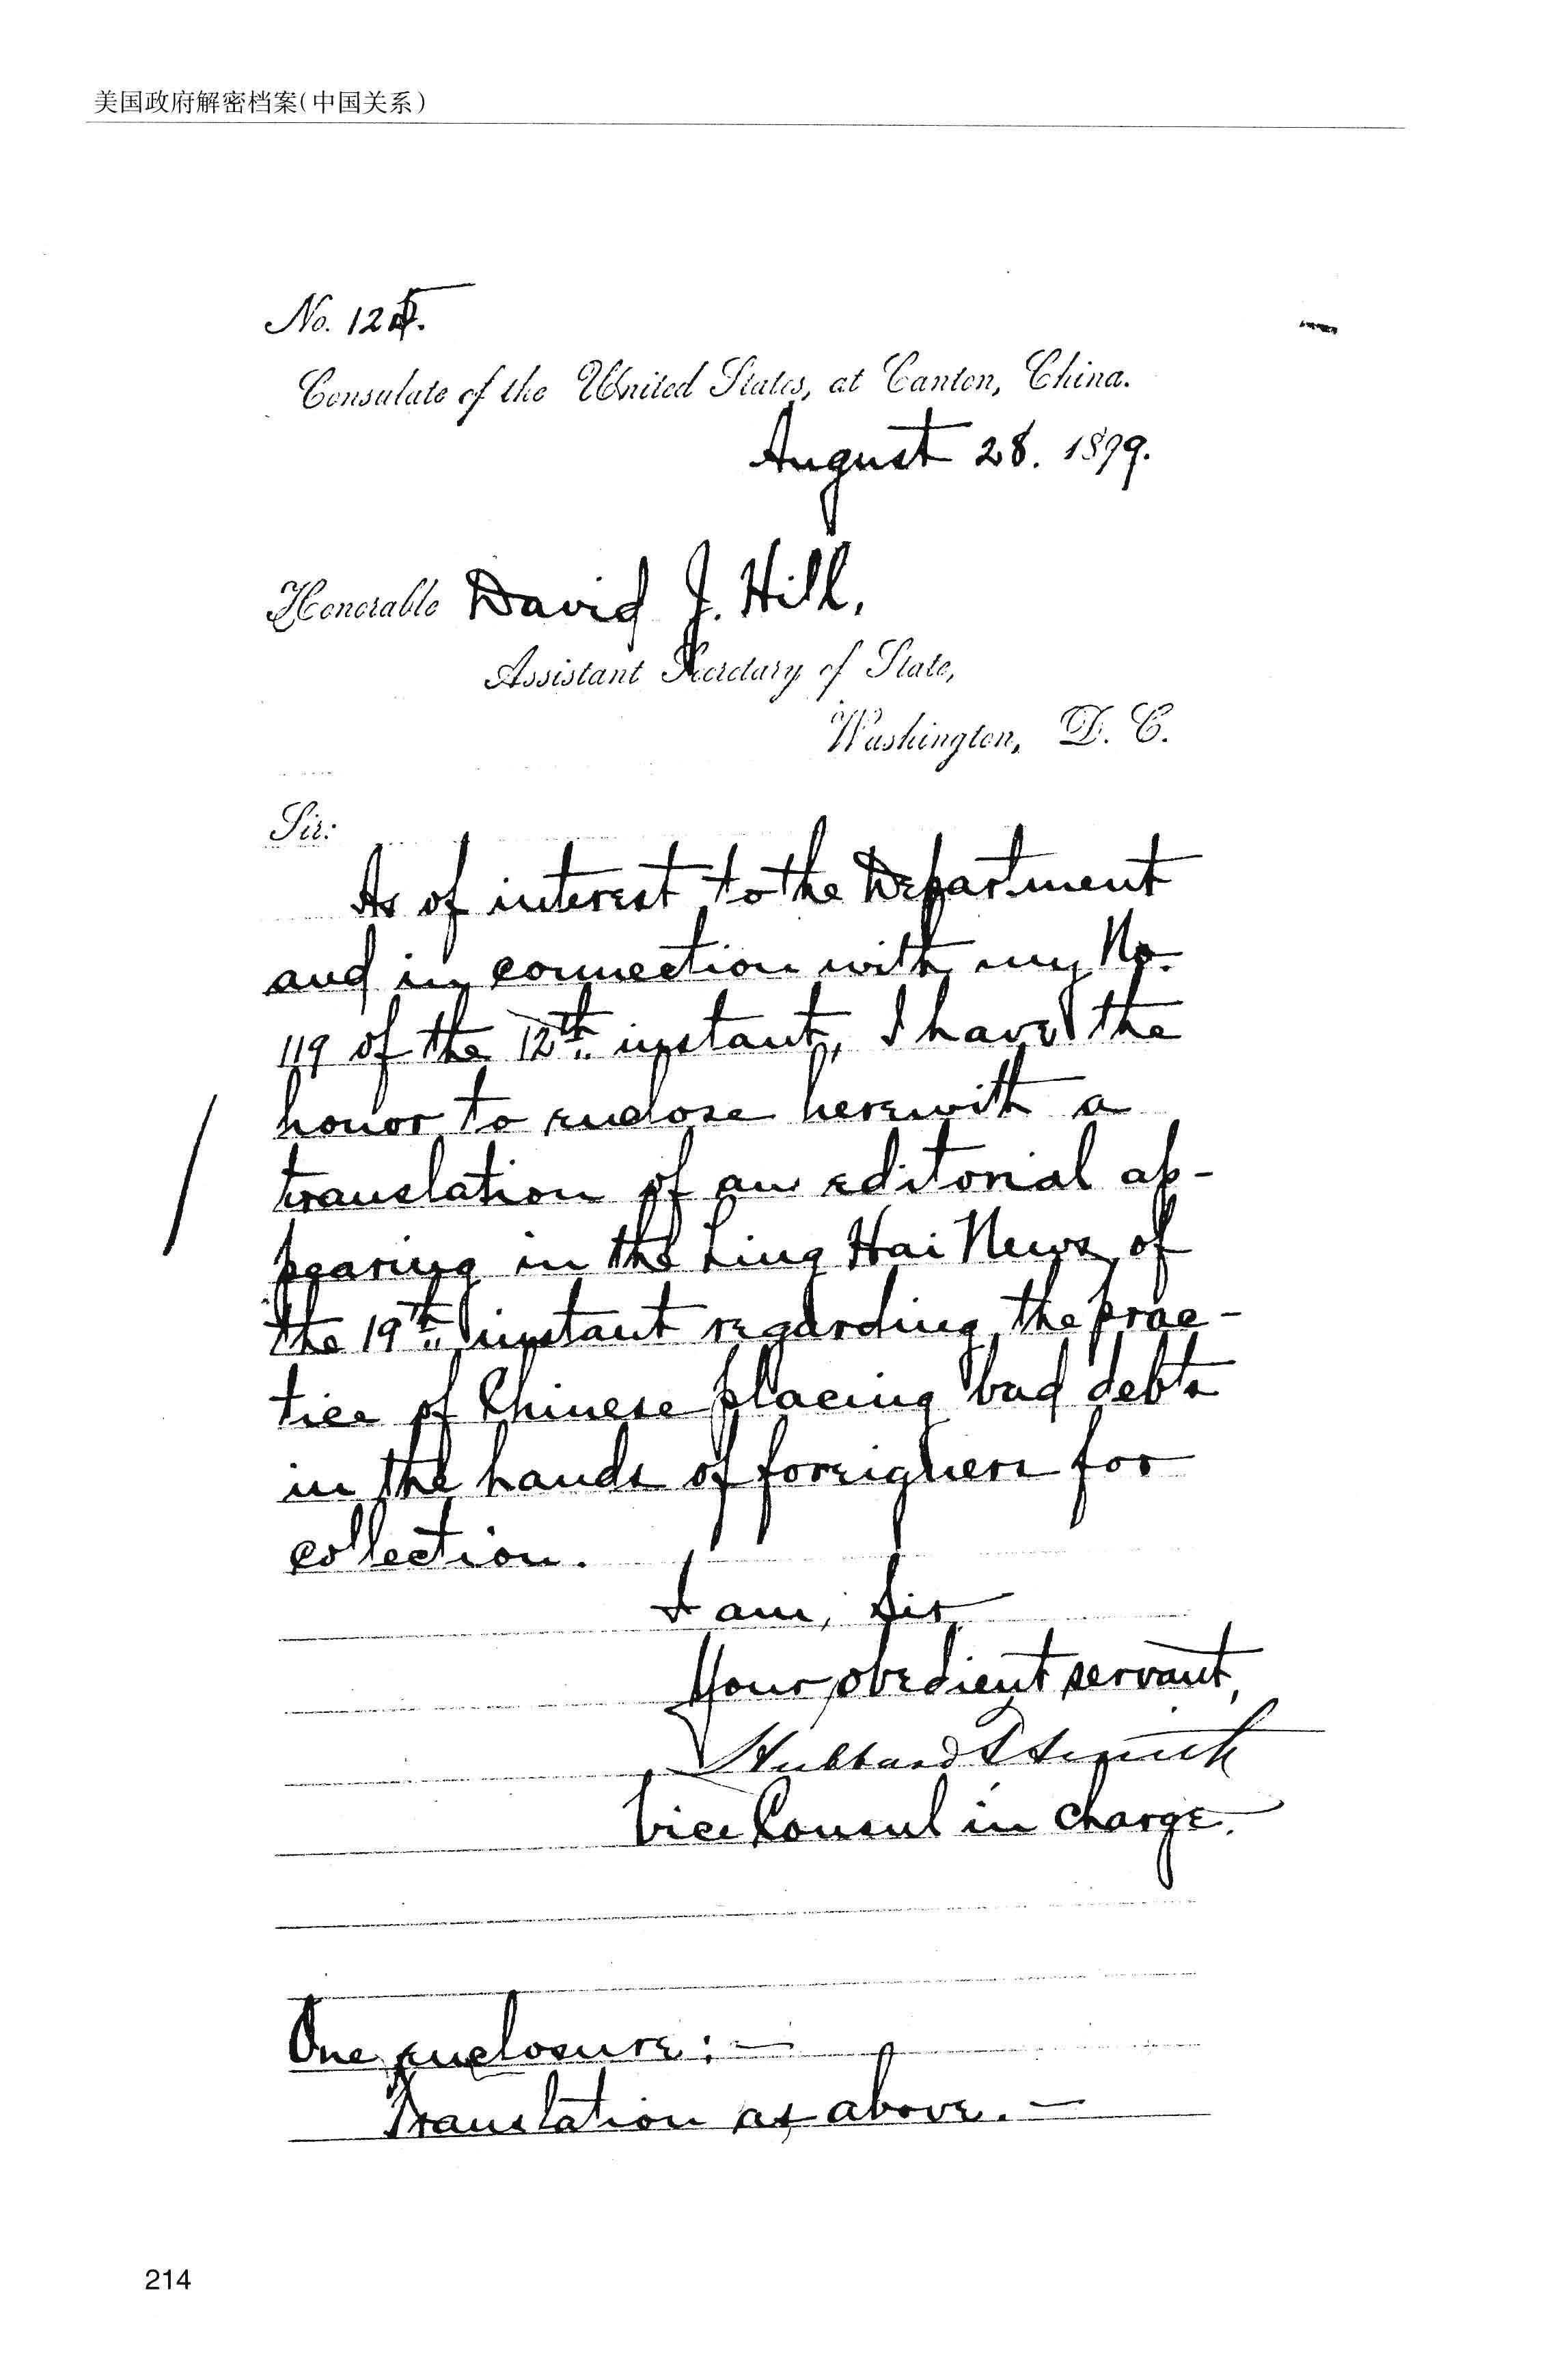 美国政府解密档案(中国关系)
No. 125.
Consulate of the United States, at Canton, China.
August 28. 1899.
Honorable David J. Hill,
Assistant Secretary of State,
Washington, D. C.
Sir:
As of interest to the Department
and in connection with my No.
119 of the 12th. instant, I have the
honor to enclose herewith a
translation of an editorial ap-
pearing in the Ling Hai News of
the 19th. instant regarding the prac-
tice of Chinese placing bad debts
in the hands of foreigners for
collection.
I am, Sir,
Your obedient servant,
Hubbard T. Smith
Vice Consul in charge.
One enclosure:—
Translation as above.—
214